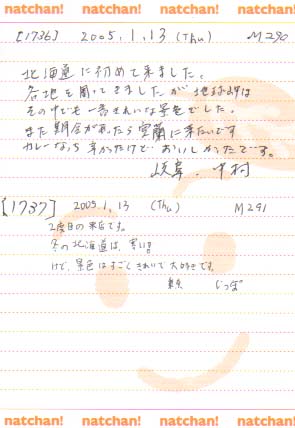 natchan! natchan! natchan! natchan!
[1736] 2005.1.13 (Thu) M290
北海道に初めて来ました。
各地を周ってきましたが地球岬は
その中でも一番きれいな景色でした。
また機会があったら室蘭に来たいです
カレーなっち辛かったけどおいしかったです。
岐阜 中村
[1737] 2005.1.13 (Thu) M291
2度目の来店です。
冬の北海道は、寒い!!
けど、景色はすごくきれいで大好きです。
東京 じっぽ
natchan! natchan! natchan! natchan!